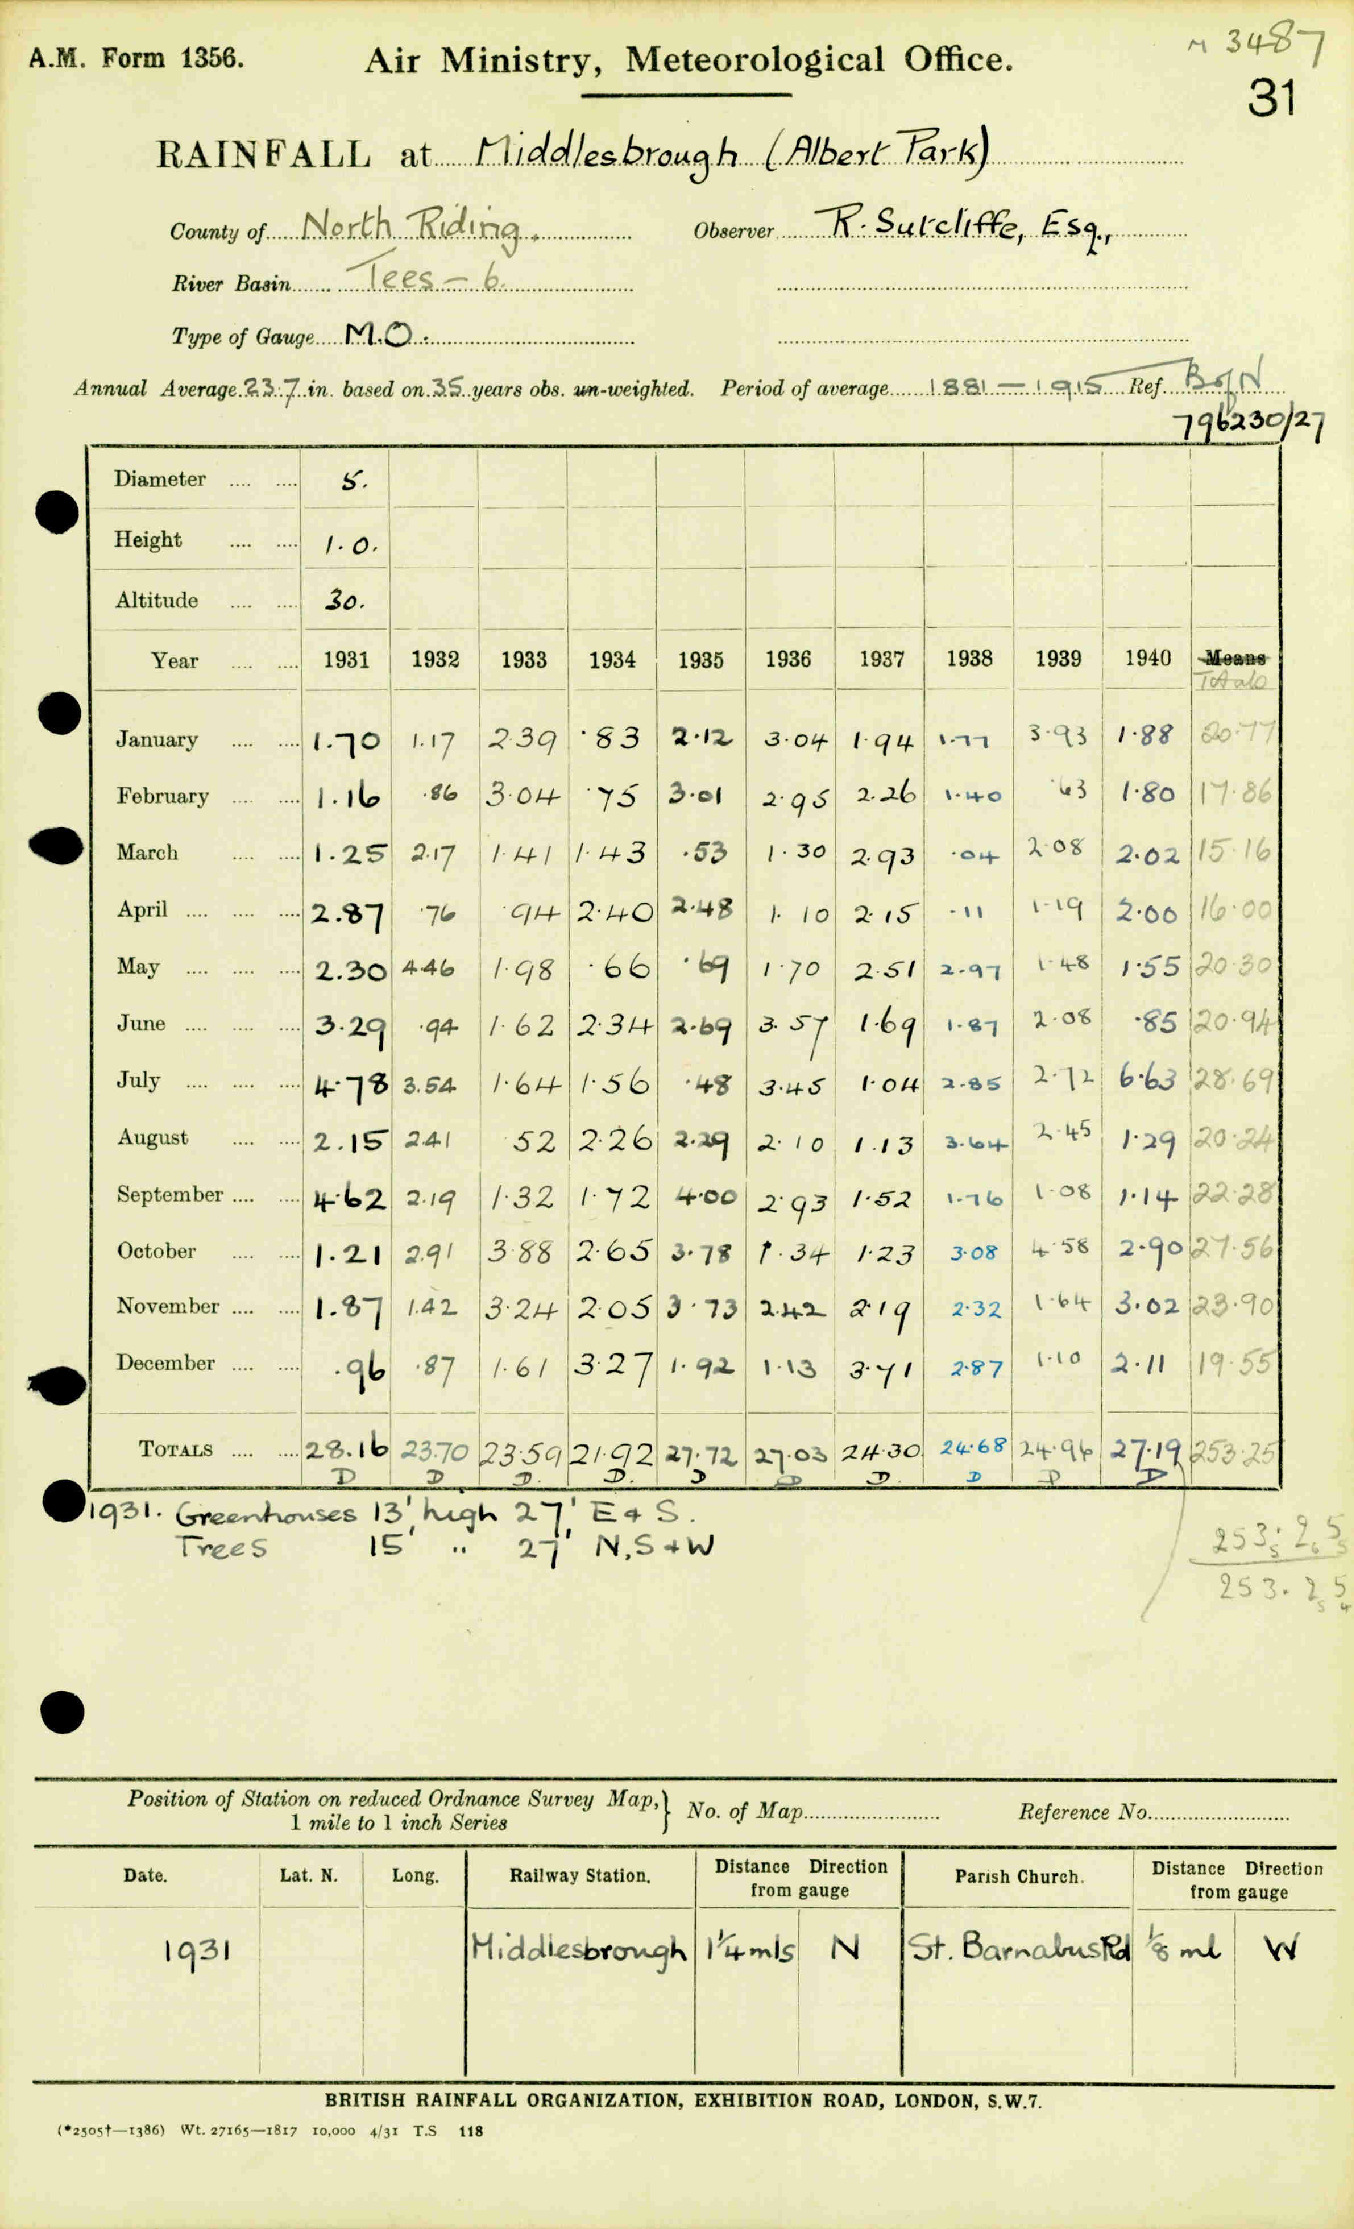 M 3487
A.M. Form 1356. Air Ministry, Meteorological Office.
31
RAINFALL at Middlesbrough (Albert Park)
County of North Riding. Observer R. Sutcliffe, Esq.,
River Basin Tees - 6.
Type of Gauge M.O.
Annual Average 23.7 in. based on 35 years obs. un-weighted. Period of average 1881-1915 Ref. B of N
796230/27
Diameter 5.
Height 1.0.
Altitude 30.
Year 1931 1932 1933 1934 1935 1936 1937 1938 1939 1940 Means
Totals
January 1.70 1.17 2.39 .83 2.12 3.04 1.94 1.77 3.93 1.88 20.77
February 1.16 .86 3.04 .75 3.01 2.95 2.26 1.40 .63 1.80 17.86
March 1.25 2.17 1.41 1.43 .53 1.30 2.93 .04 2.08 2.02 15.16
April 2.87 .76 .94 2.40 2.48 1.10 2.15 .11 1.19 2.00 16.00
May 2.30 4.46 1.98 .66 .69 1.70 2.51 2.97 1.48 1.55 20.30
June 3.29 .94 1.62 2.34 2.69 3.57 1.69 1.87 2.08 .85 20.94
July 4.78 3.54 1.64 1.56 .48 3.45 1.04 2.85 2.72 6.63 28.69
August 2.15 2.41 52 2.26 2.29 2.10 1.13 3.64 2.45 1.29 20.24
September 4.62 2.19 1.32 1.72 4.00 2.93 1.52 1.76 1.08 1.14 22.28
October 1.21 2.91 3.88 2.65 3.78 1.34 1.23 3.08 4.58 2.90 27.56
November 1.87 1.42 3.24 2.05 3.73 2.42 2.19 2.32 1.64 3.02 23.90
December .96 .87 1.61 3.27 1.92 1.13 3.71 2.87 1.10 2.11 19.55
TOTALS 28.16 23.70 23.59 21.92 27.72 27.03 24.30 24.68 24.96 27.19 253.25
D D D. D. D D D. D D D
1931. Greenhouses 13' high 27' E & S.
Trees 15' " 27' N, S & W
253.25
253.25
Position of Station on reduced Ordnance Survey Map, } No. of Map Reference No.
1 mile to 1 inch Series
Date. Lat. N. Long. Railway Station. Distance Direction Parish Church. Distance Direction
from gauge from gauge
1931 Middlesbrough 1¼ mls N St. Barnabus Rd ⅛ ml W
BRITISH RAINFALL ORGANIZATION, EXHIBITION ROAD, LONDON, S.W.7.
(*2505†—1386) Wt. 27165—1817 10,000 4/31 T.S 118